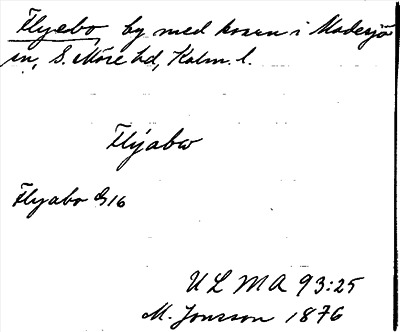 Flyebo by med kvarn i Madesjö
sn, S. Möre hd, Kalm. l.
Flyabo
Flyabo G16
ULMA 93:25
M. Jonsson 1876